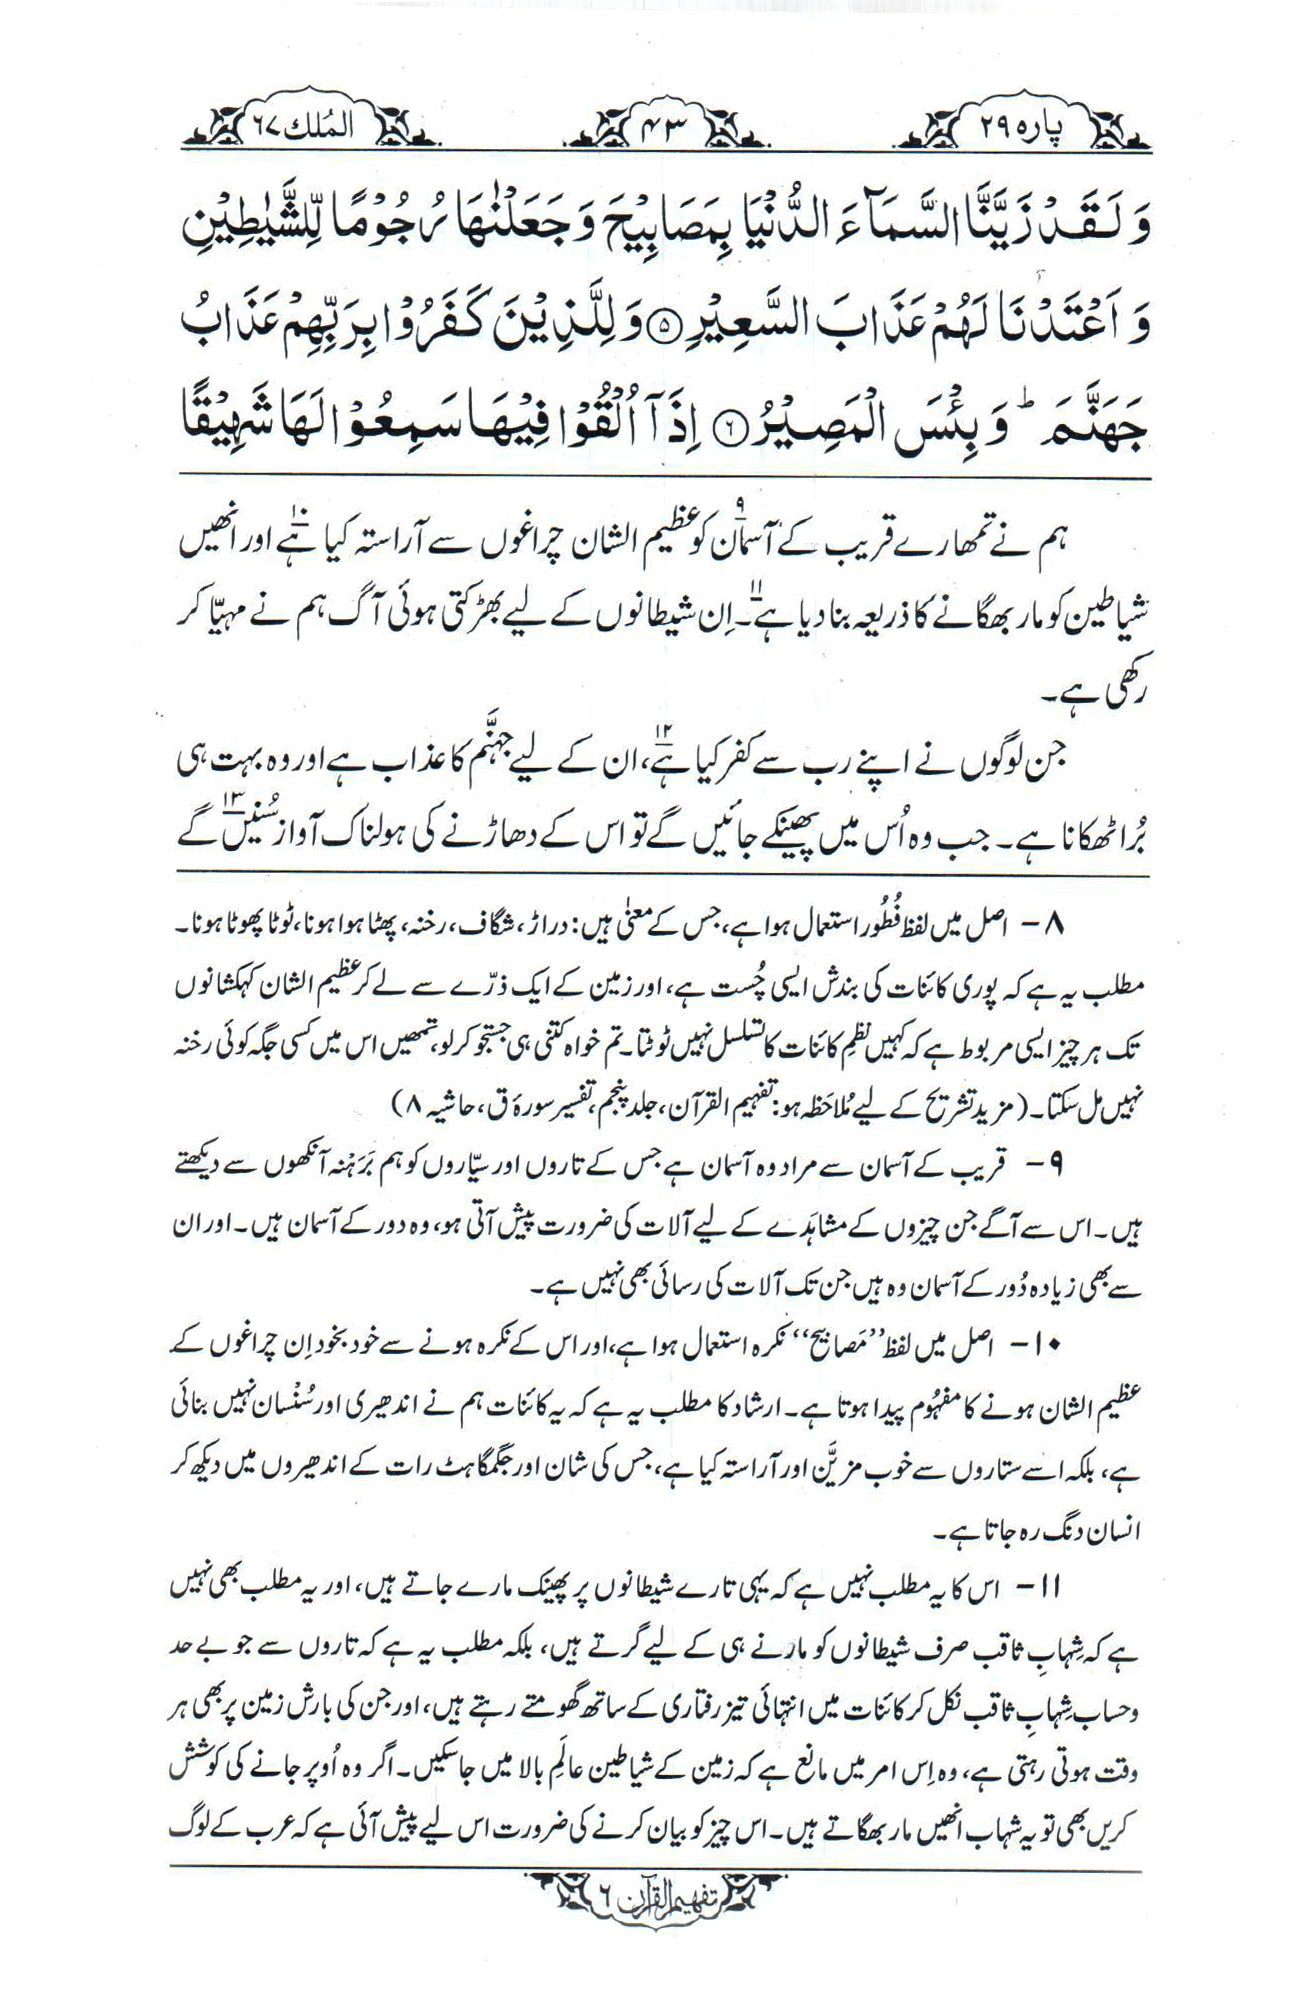 پارہ ۲۹
۴۳
المُلك ۶۷
وَ لَقَدْ زَيَّنَّا السَّمَآءَ الدُّنْيَا بِمَصَابِيْحَ وَ جَعَلْنٰهَا رُجُوْمًا لِّلشَّيٰطِيْنِ
وَ اَعْتَدْنَا لَهُمْ عَذَابَ السَّعِيْرِ ۵ وَ لِلَّذِيْنَ كَفَرُوْا بِرَبِّهِمْ عَذَابُ
جَهَنَّمَ ؕ وَ بِئْسَ الْمَصِيْرُ ۶ اِذَاۤ اُلْقُوْا فِيْهَا سَمِعُوْا لَهَا شَهِيْقًا
ہم نے تمھارے قریب کے آسمان۹ کو عظیم الشان چراغوں سے آراستہ کیا ہے۱۰ اور انھیں
شیاطین کو مار بھگانے کا ذریعہ بنا دیا ہے۱۱۔ اِن شیطانوں کے لیے بھڑکتی ہوئی آگ ہم نے مہیّا کر
رکھی ہے۔
جن لوگوں نے اپنے رب سے کفر کیا ہے۱۲، ان کے لیے جہنّم کا عذاب ہے اور وہ بہت ہی
بُرا ٹھکانا ہے۔ جب وہ اُس میں پھینکے جائیں گے تو اس کے دھاڑنے کی ہولناک آواز سُنیں۱۳ گے
۸- اصل میں لفظ فُطُور استعمال ہوا ہے، جس کے معنٰی ہیں: دراڑ، شگاف، رخنہ، پھٹا ہوا ہونا، ٹوٹا پھوٹا ہونا۔
مطلب یہ ہے کہ پوری کائنات کی بندش ایسی چُست ہے، اور زمین کے ایک ذرّے سے لے کر عظیم الشان کہکشانوں
تک ہر چیز ایسی مربوط ہے کہ کہیں نظمِ کائنات کا تسلسل نہیں ٹوٹتا۔ تم خواہ کتنی ہی جستجو کر لو، تمھیں اس میں کسی جگہ کوئی رخنہ
نہیں مل سکتا۔ (مزید تشریح کے لیے مُلاحَظہ ہو: تفہیم القرآن، جلد پنجم، تفسیر سورۂ ق، حاشیہ ۸)
۹- قریب کے آسمان سے مراد وہ آسمان ہے جس کے تاروں اور سیّاروں کو ہم بَرَہْنہ آنکھوں سے دیکھتے
ہیں۔ اس سے آگے جن چیزوں کے مشاہَدے کے لیے آلات کی ضرورت پیش آتی ہو، وہ دور کے آسمان ہیں۔ اور ان
سے بھی زیادہ دُور کے آسمان وہ ہیں جن تک آلات کی رسائی بھی نہیں ہے۔
۱۰- اصل میں لفظ ”مَصابیح“ نکرہ استعمال ہوا ہے، اور اس کے نکرہ ہونے سے خود بخود اِن چراغوں کے
عظیم الشان ہونے کا مفہُوم پیدا ہوتا ہے۔ ارشاد کا مطلب یہ ہے کہ یہ کائنات ہم نے اندھیری اور سُنْسان نہیں بنائی
ہے، بلکہ اسے ستاروں سے خوب مزیَّن اور آراستہ کیا ہے، جس کی شان اور جگمگاہٹ رات کے اندھیروں میں دیکھ کر
انسان دنگ رہ جاتا ہے۔
۱۱- اس کا یہ مطلب نہیں ہے کہ یہی تارے شیطانوں پر پھینک مارے جاتے ہیں، اور یہ مطلب بھی نہیں
ہے کہ شِہابِ ثاقب صرف شیطانوں کو مارنے ہی کے لیے گرتے ہیں، بلکہ مطلب یہ ہے کہ تاروں سے جو بے حد
و حساب شِہابِ ثاقب نکل کر کائنات میں انتہائی تیز رفتاری کے ساتھ گھومتے رہتے ہیں، اور جن کی بارش زمین پر بھی ہر
وقت ہوتی رہتی ہے، وہ اِس امر میں مانع ہے کہ زمین کے شیاطین عالَمِ بالا میں جا سکیں۔ اگر وہ اُوپر جانے کی کوشش
کریں بھی تو یہ شہاب انھیں مار بھگاتے ہیں۔ اس چیز کو بیان کرنے کی ضرورت اس لیے پیش آئی ہے کہ عرب کے لوگ
تفہیم القرآن ۶